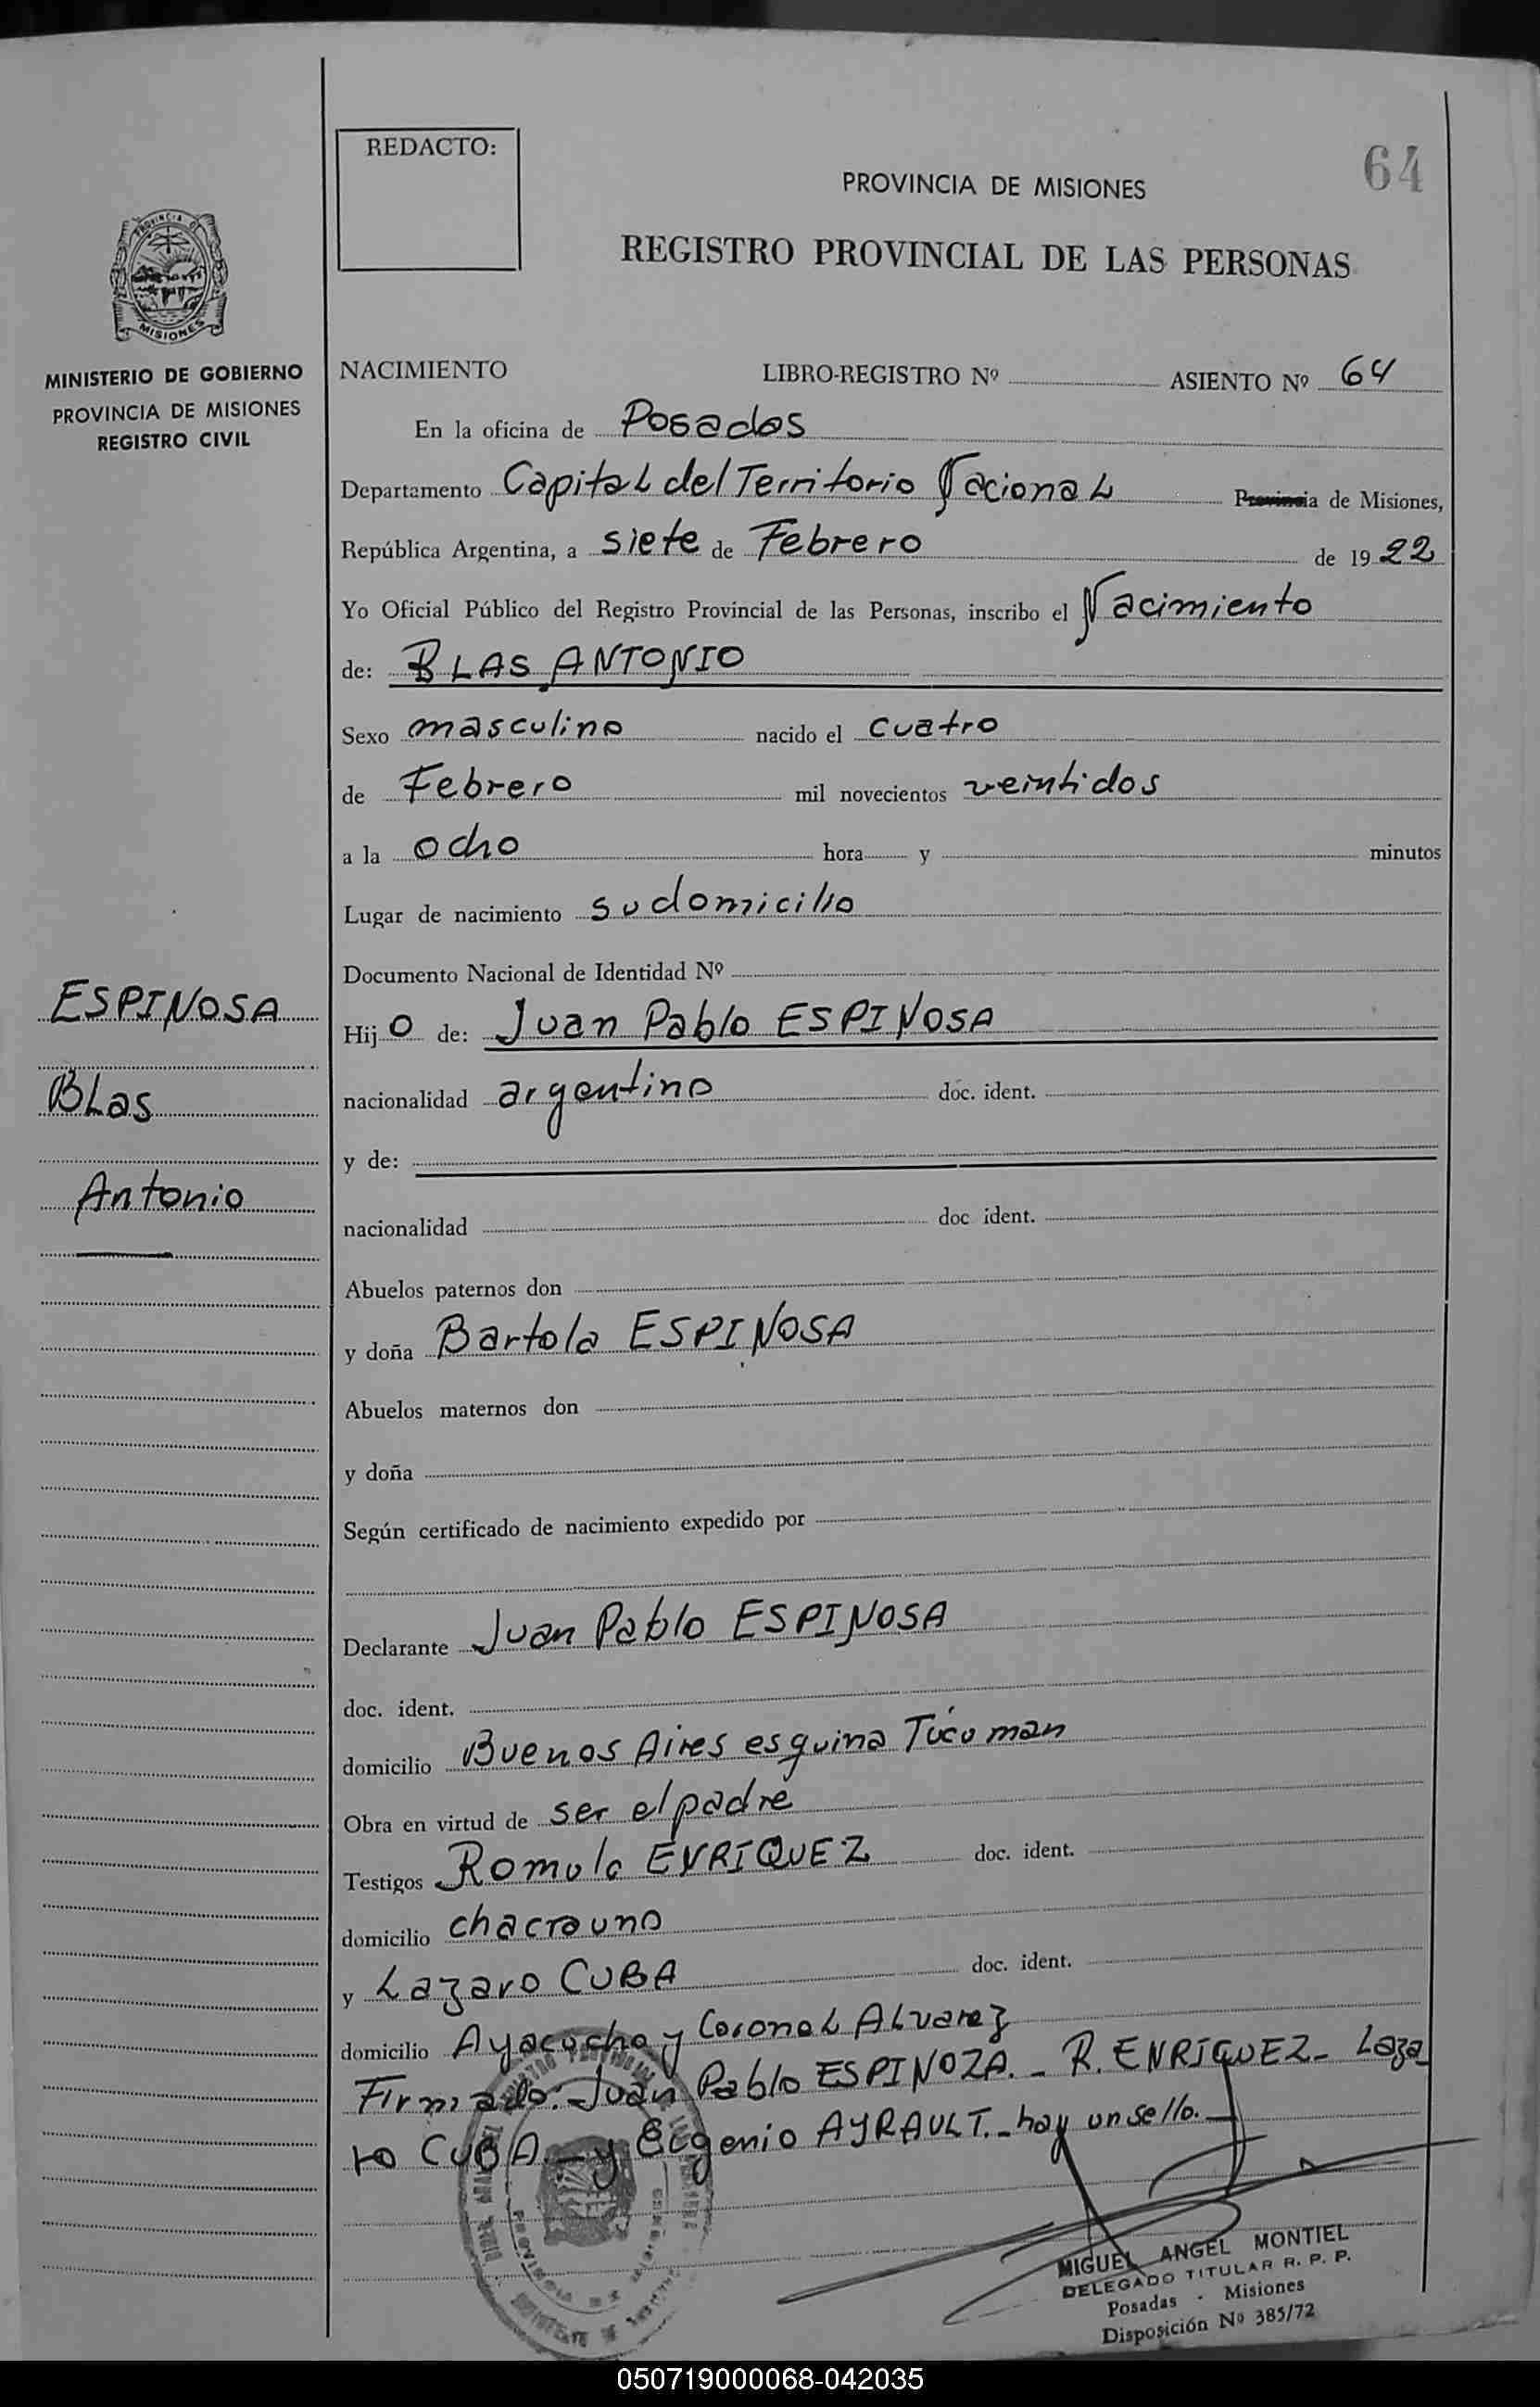 REDACTO:
64
PROVINCIA DE MISIONES
REGISTRO PROVINCIAL DE LAS PERSONAS
PROVINCIA
MISIONES
MINISTERIO DE GOBIERNO
PROVINCIA DE MISIONES
REGISTRO CIVIL
NACIMIENTO LIBRO-REGISTRO Nº ASIENTO Nº 64
En la oficina de Posadas
Departamento Capital del Territorio Nacional Provincia de Misiones,
República Argentina, a siete de Febrero de 1922
Yo Oficial Público del Registro Provincial de las Personas, inscribo el Nacimiento
de: BLAS ANTONIO
Sexo masculino nacido el cuatro
de Febrero mil novecientos veintidos
a la ocho hora y minutos
Lugar de nacimiento su domicilio
Documento Nacional de Identidad Nº
ESPINOSA
Blas
Antonio
Hijo de: Juan Pablo ESPINOSA
nacionalidad argentino doc. ident.
y de:
nacionalidad doc ident.
Abuelos paternos don
y doña Bartola ESPINOSA
Abuelos maternos don
y doña
Según certificado de nacimiento expedido por
Declarante Juan Pablo ESPINOSA
doc. ident.
domicilio Buenos Aires esquina Tucuman
Obra en virtud de ser el padre
Testigos Romulo ENRIQUEZ doc. ident.
domicilio chacra uno
y Lazaro CUBA doc. ident.
domicilio Ayacucho y Coronel Alvarez
Firmado: Juan Pablo ESPINOZA. - R. ENRIQUEZ - Laza
ro CUBA. - y Eugenio AYRAULT. - hay un sello. -
MIGUEL ANGEL MONTIEL
DELEGADO TITULAR R. P. P.
Posadas - Misiones
Disposición Nº 385/72
050719000068-042035